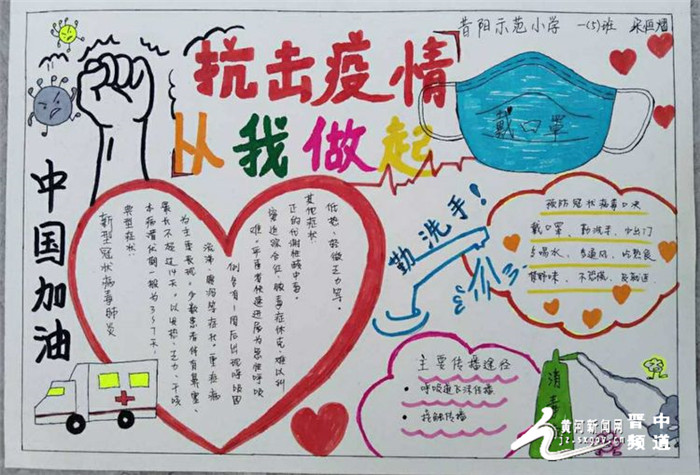 昔阳示范小学 一(5)班
抗击疫情
从我做起
中国加油
戴口罩
勤洗手！
新型冠状病毒肺炎
典型症状
本病潜伏期一般为3~7天，
最长不超过14天，以发热、乏力、干咳
为主要表现。少数患者伴有鼻塞、
流涕、腹泻等症状。重症病
例多有1周后出现呼吸困
难，严重者快速进展为急性呼吸
窘迫综合征、脓毒症休克、难以纠
正的代谢性酸中毒。
其他症状
低热、轻微乏力等。
预防冠状病毒口决
戴口罩，勤洗手，少出门
多喝水，多通风，吃熟食
主要传播途径
• 呼吸道飞沫传播
• 接触传播
消毒
黄河新闻网
jz.sxgov.cn
晋中
频道